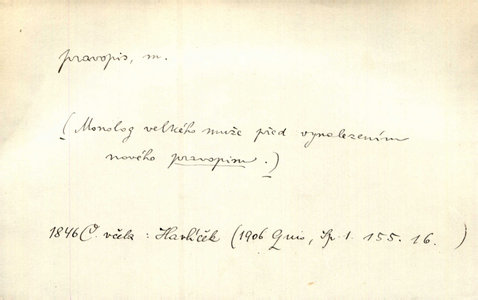 pravopis, m.
(Monolog velkého muže před vynalezením
nového pravopisu.)
1846 Č. včela : Havlíček (1906 Quis, Sp. 1. 155. 16. )